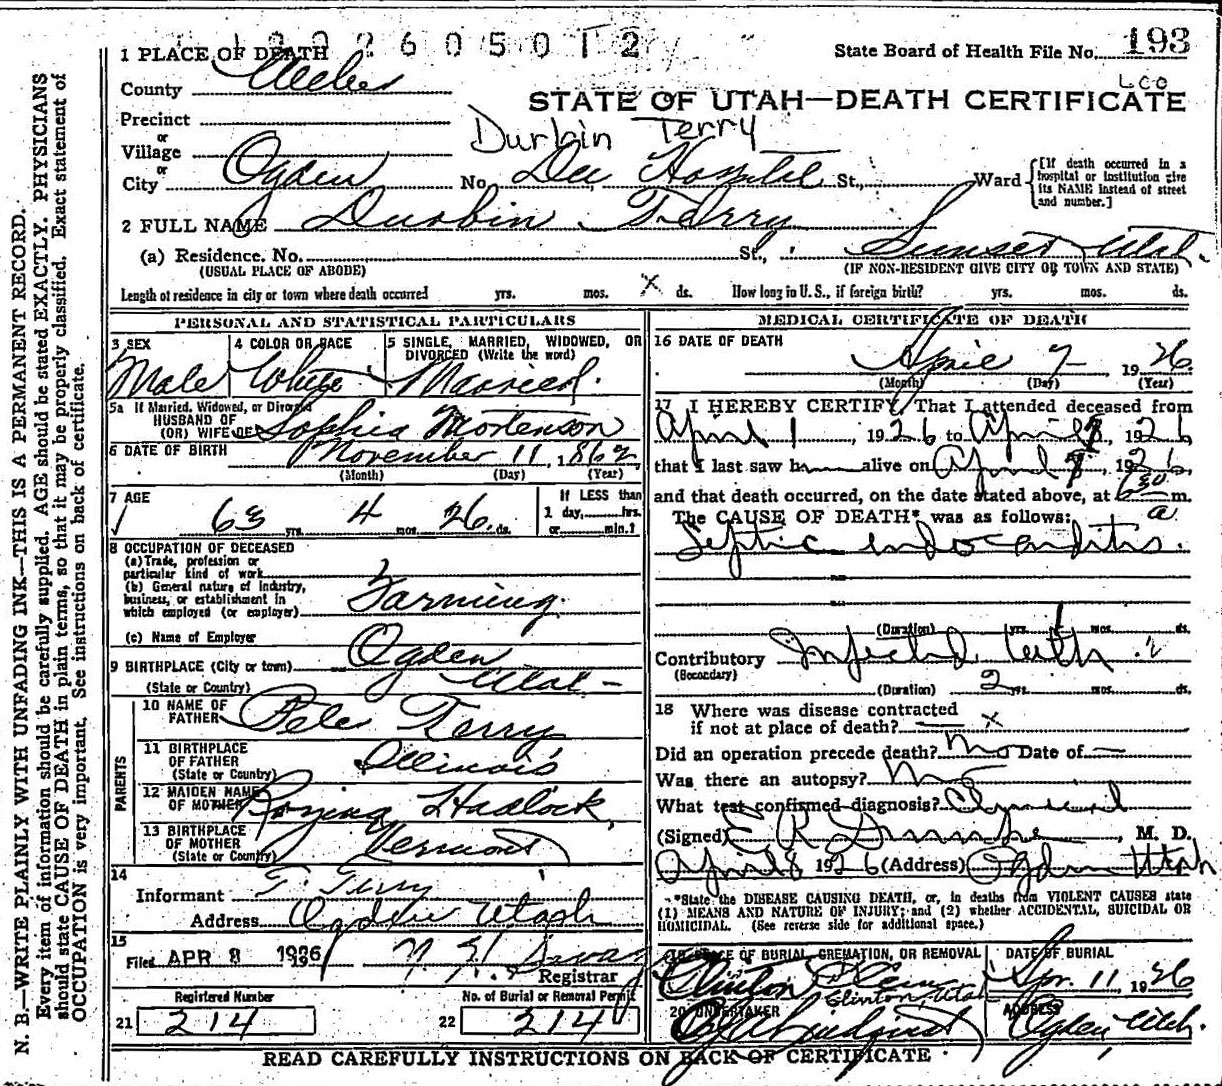 1 0 0 2 6 0 5 0 1 2
1 PLACE OF DEATH
State Board of Health File No. 193
County Weber
LCO
STATE OF UTAH—DEATH CERTIFICATE
Precinct
or
Durbin Terry
Village
or
City Ogden No. Dee Hospital St., Ward
[If death occurred in a hospital or institution give its NAME instead of street and number.]
2 FULL NAME Durbin Terry
(a) Residence. No. St., Sunset Utah.
(USUAL PLACE OF ABODE) (IF NON-RESIDENT GIVE CITY OR TOWN AND STATE)
Length of residence in city or town where death occurred yrs. mos. X ds. How long in U. S., if foreign birth? yrs. mos. ds.
PERSONAL AND STATISTICAL PARTICULARS
3 SEX
Male
4 COLOR OR RACE
White
5 SINGLE, MARRIED, WIDOWED, OR DIVORCED (Write the word)
Married.
5a If Married, Widowed, or Divorced
HUSBAND OF
(OR) WIFE OF Sophia Mortenson
6 DATE OF BIRTH November 11, 1862
(Month) (Day) (Year)
7 AGE
63 yrs. 4 mos. 26 ds.
If LESS than
1 day, hrs.
or min.?
8 OCCUPATION OF DECEASED
(a) Trade, profession or
particular kind of work
(b) General nature of Industry,
business, or establishment in
which employed (or employer) Farming.
(c) Name of Employer
9 BIRTHPLACE (City or town) Ogden
(State or Country) Utah -
PARENTS
10 NAME OF
FATHER Pete Terry
11 BIRTHPLACE
OF FATHER Illinois
(State or Country)
12 MAIDEN NAME
OF MOTHER Rozina Hadlock,
13 BIRTHPLACE
OF MOTHER Vermont
(State or Country)
14
Informant T. Terry
Address Ogden Utah
15
Filed APR 8 1926
Registrar
Registered Number
21 214
No. of Burial or Removal Permit
22 214
MEDICAL CERTIFICATE OF DEATH
16 DATE OF DEATH
April 7 1926
(Month) (Day) (Year)
17 I HEREBY CERTIFY, That I attended deceased from
April 1, 1926 to April 7, 1926
that I last saw h alive on April 7, 1926,
and that death occurred, on the date stated above, at 630 a m.
The CAUSE OF DEATH* was as follows:
Septic endocarditis.
(Duration) yrs. 1 mos. ds.
Contributory Infected teeth
(Secondary)
(Duration) 2 yrs. mos. ds.
18 Where was disease contracted
if not at place of death? X
Did an operation precede death? no Date of —
Was there an autopsy? no
What test confirmed diagnosis? Clynical
(Signed) E R , M. D.
April 8 1926 (Address) Ogden Utah
*State the DISEASE CAUSING DEATH, or, in deaths from VIOLENT CAUSES state
(1) MEANS AND NATURE OF INJURY; and (2) whether ACCIDENTAL, SUICIDAL OR
HOMICIDAL. (See reverse side for additional space.)
19 PLACE OF BURIAL, CREMATION, OR REMOVAL
Clinton
Clinton, Utah
DATE OF BURIAL
Apr. 11, 1926
20 UNDERTAKER
ADDRESS
Ogden Utah.
READ CAREFULLY INSTRUCTIONS ON BACK OF CERTIFICATE
N. B.—WRITE PLAINLY WITH UNFADING INK—THIS IS A PERMANENT RECORD.
Every item of information should be carefully supplied. AGE should be stated EXACTLY. PHYSICIANS
should state CAUSE OF DEATH in plain terms, so that it may be properly classified. Exact statement of
OCCUPATION is very important. See instructions on back of certificate.